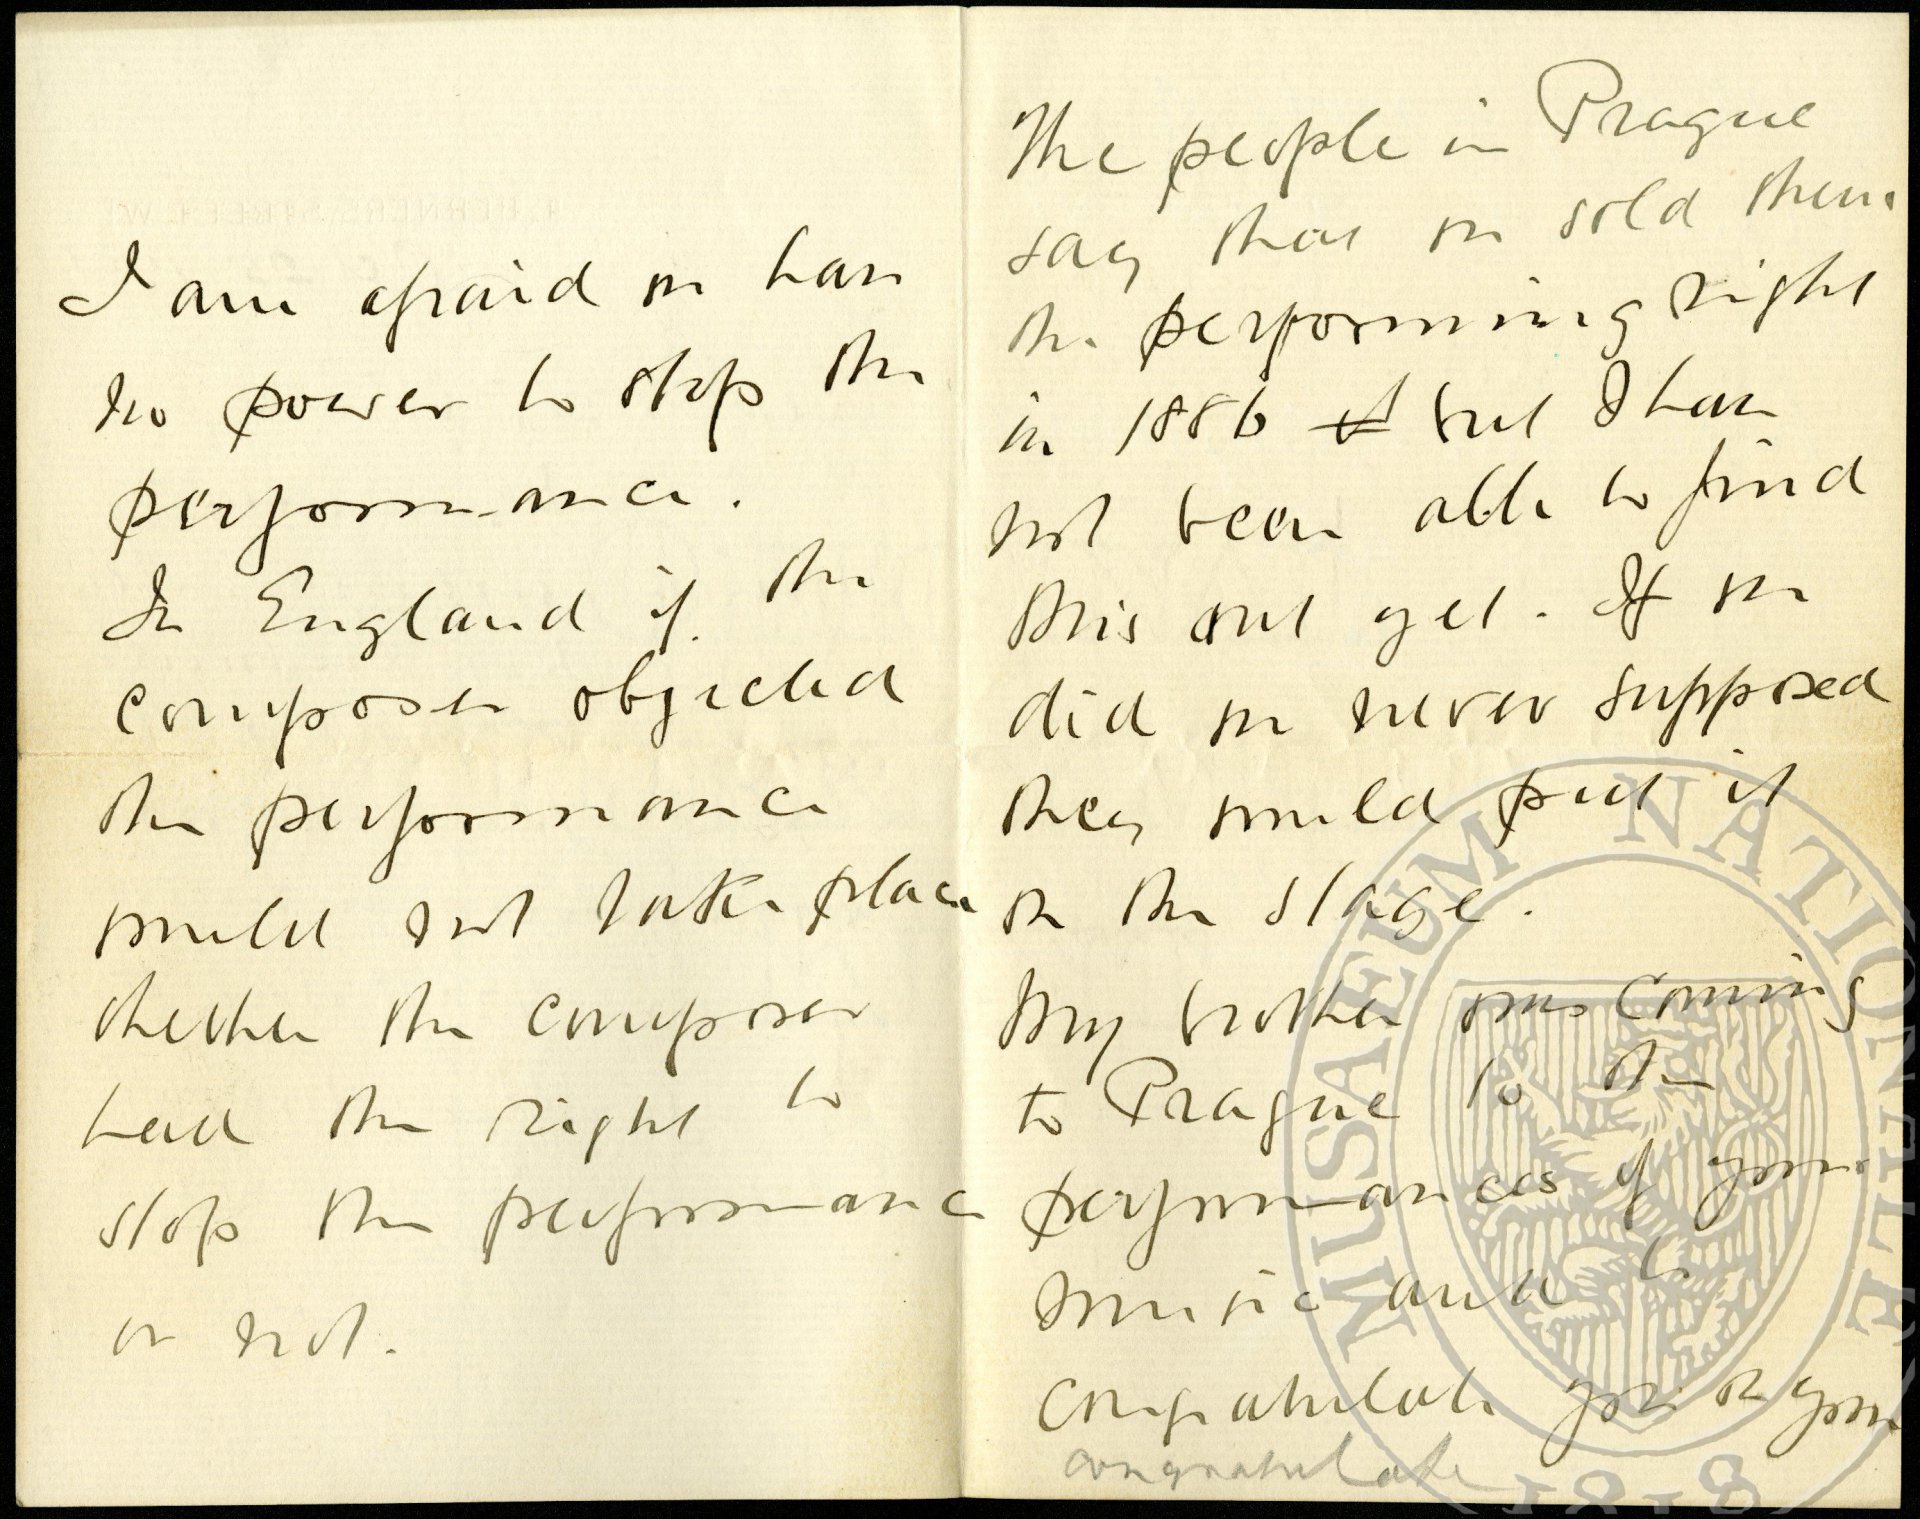 I am afraid we have
no power to stop the
performance.
In England if the
composer objected
the performance
would not take place
whether the composer
had the right to
stop the performance
or not.
The people in Prague
say that we sold them
the performing right
in 1886 but I have
not been able to find
this out yet. If we
did we never supposed
they would put it
on the stage.
My brother was coming
to Prague to the
performances of your
music and to
congratulate you on your
congratulate
MUSAEUM NATIONALE
1818